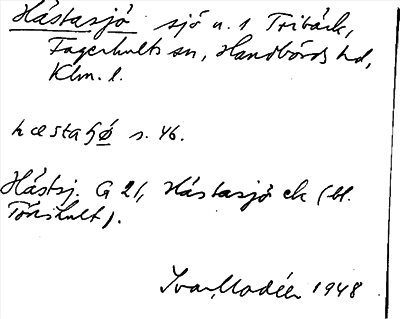 Hästasjö sjö u. 1 Tribäck,
Fagerhults sn, Handbörds hd,
Klm. l.
hæstaʃø s. 46.
Hästsj. G 21, Hästasjö ek (bl.
Törishult).
Ivar Modéer 1948